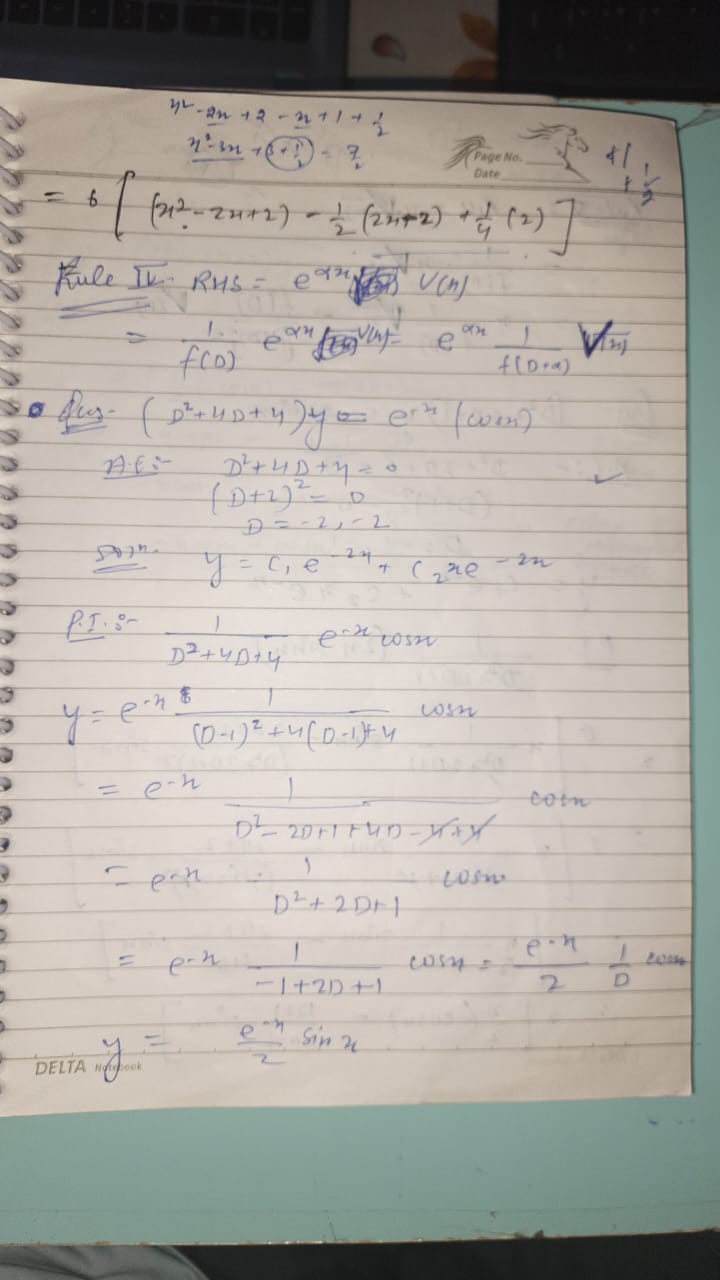 x² - 2x + 2 - x + 1 + 1/2
x² - 3x + (3 + 1/2) = 7/2
Page No.
Date
+1 1/2
= 6 [ (x² - 2x + 2) - 1/2 (2x - 2) + 1/4 (2) ]
Rule IV - RHS = e^αx V(x)
= 1/f(D) e^αx V(x) = e^αx 1/f(D+α) V(x)
Ques- (D² + 4D + 4) y = e^-x (cosx)
A.E :- D² + 4D + 4 = 0
(D+2)² = 0
D = -2, -2
Soln. y = C₁e^-2x + C₂xe^-2x
P.I. :- 1/(D² + 4D + 4) e^-x cosx
y = e^-x 1/((D-1)² + 4(D-1) + 4) cosx
= e^-x 1/(D² - 2D + 1 + 4D - 4 + 4) cosx
= e^-x 1/(D² + 2D + 1) cosx
= e^-x 1/(-1 + 2D + 1) cosx = e^-x/2 1/D cosx
y = e^-x/2 sin x
DELTA Notebook